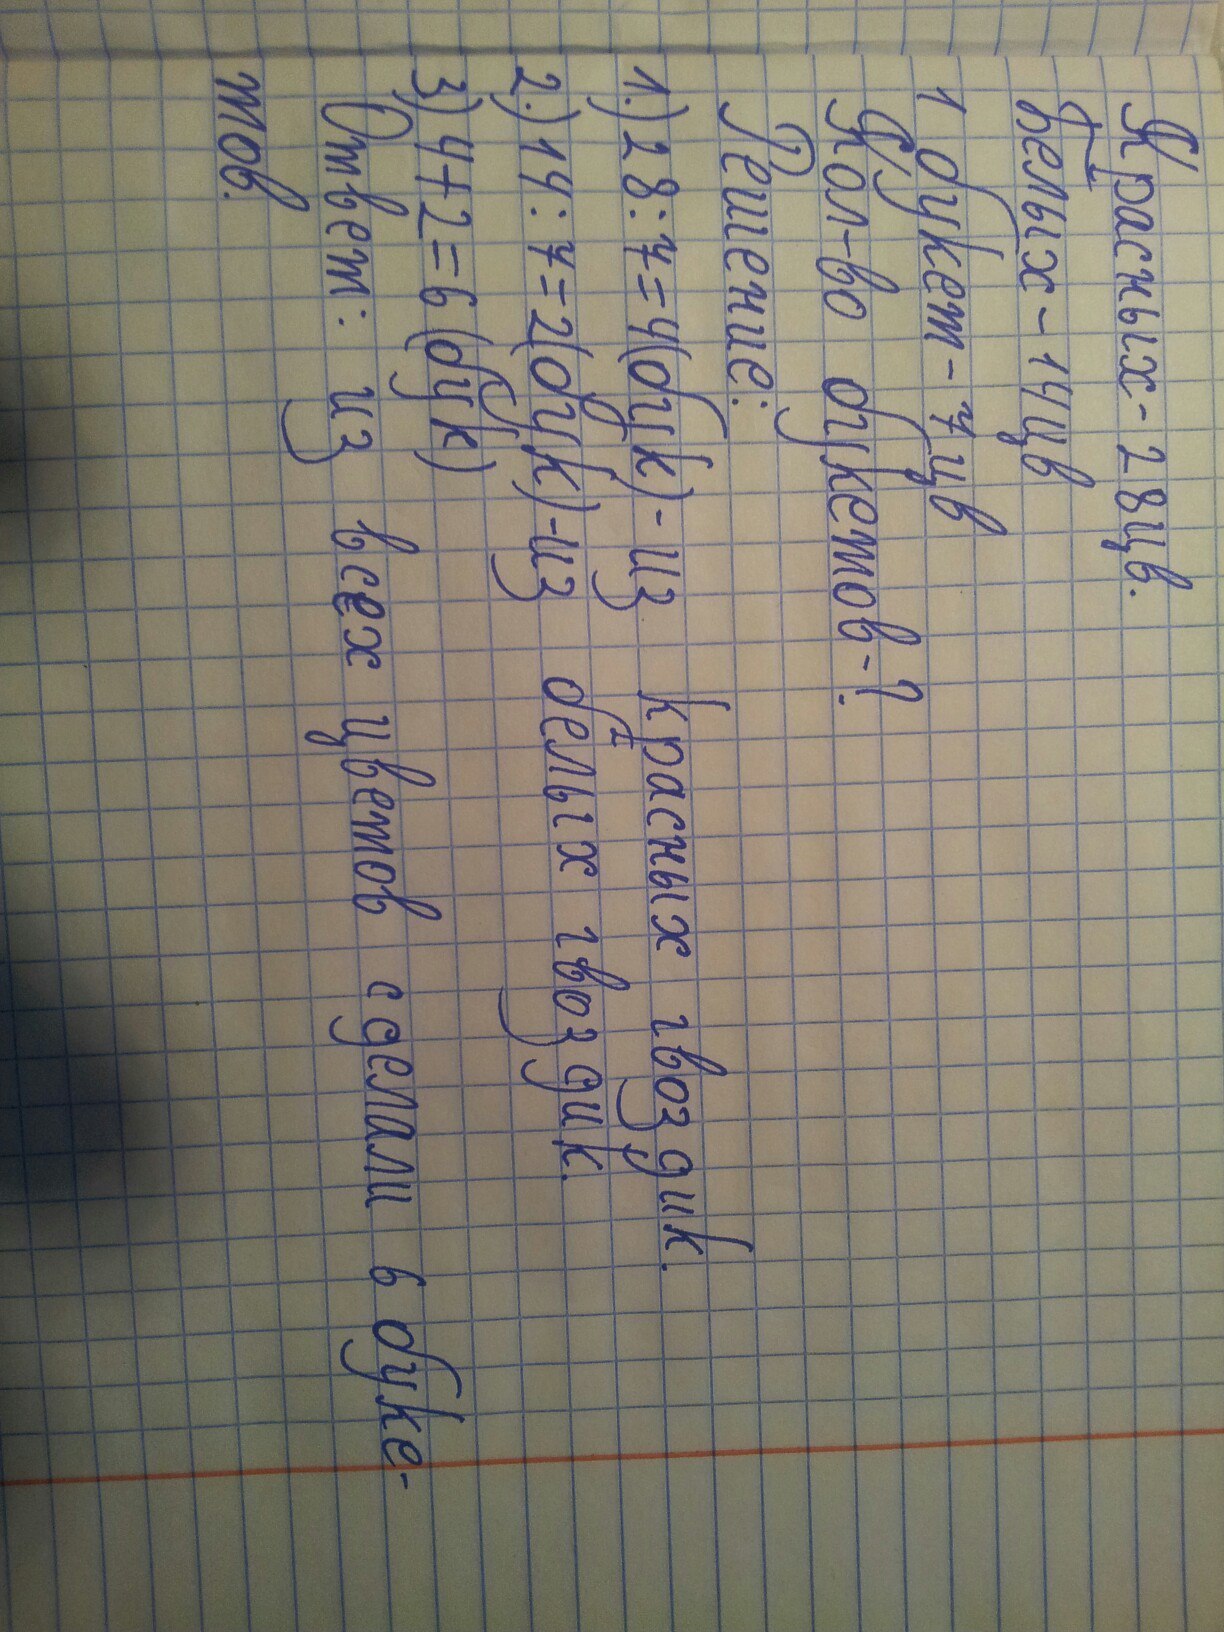 Красных - 28цв.
Белых - 14цв
1 букет - 7цв
Кол-во букетов - ?
Решение:
1.) 28:7=4(бук) - из красных гвоздик.
2.) 14:7=2(бук) - из белых гвоздик.
3) 4+2=6(бук)
Ответ: из всех цветов сделали 6 буке-
тов.